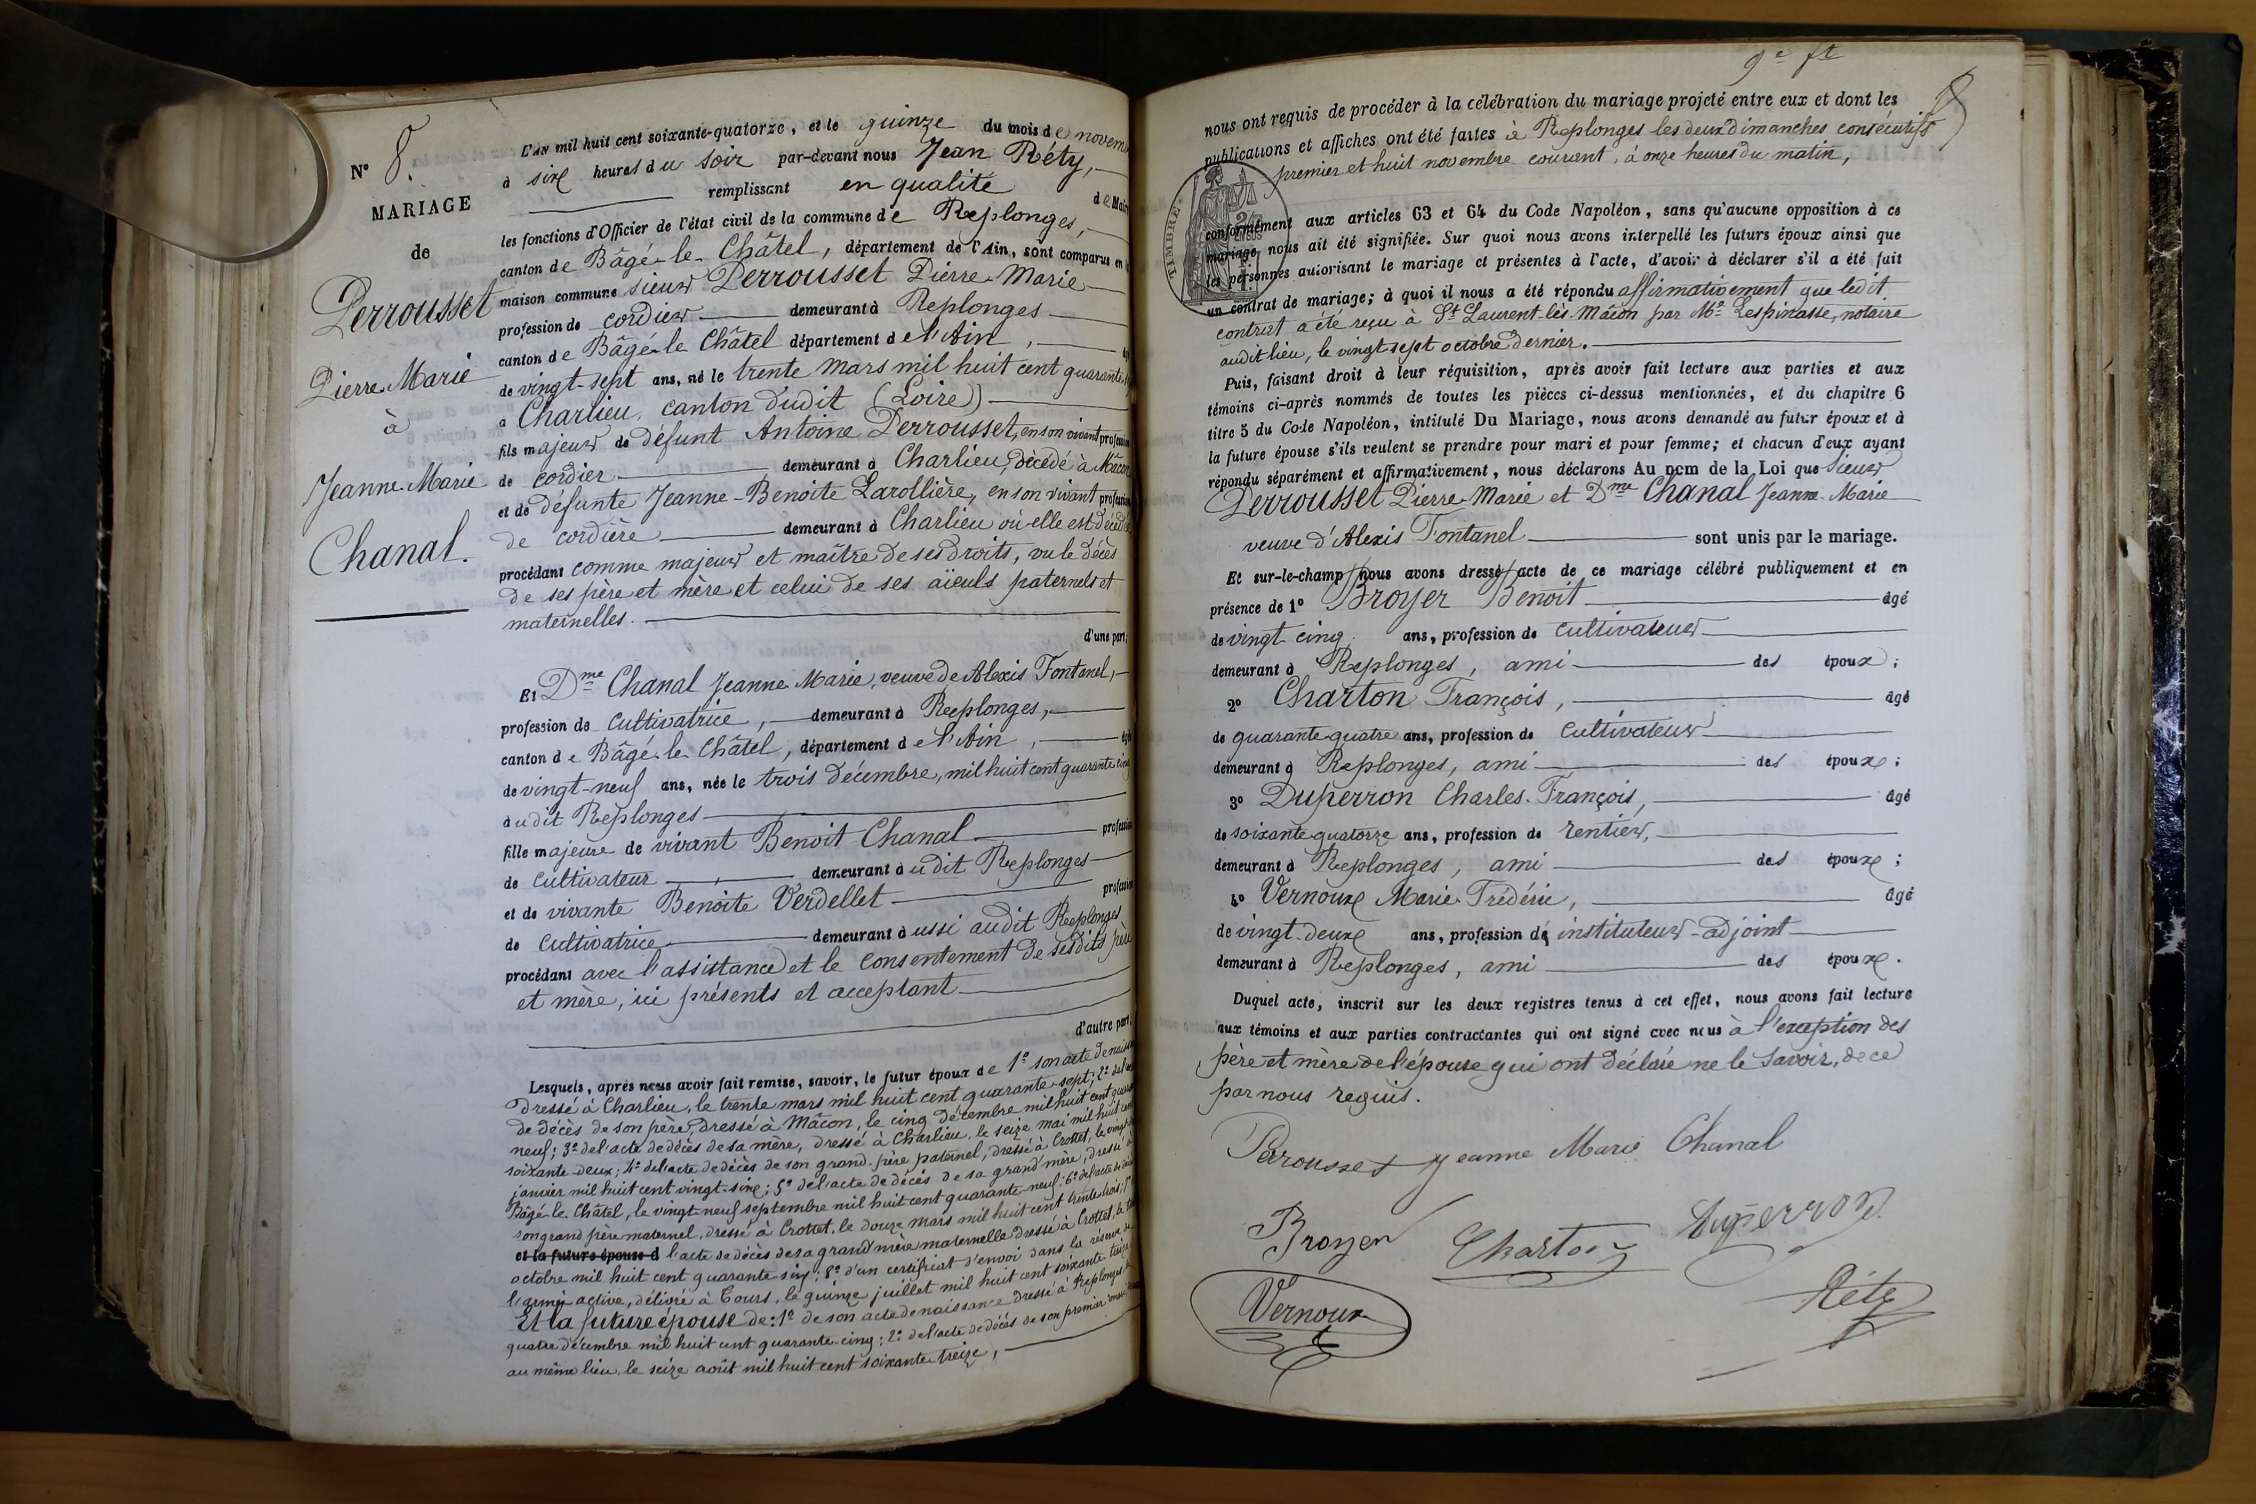 N° 8.
MARIAGE
de
Perrousset
Pierre-Marie
à
Jeanne-Marie
Chanal.
L'AN mil huit cent soixante-quatorze, et le quinze du mois de novem
à six heures du soir par-devant nous Jean Réty,
remplissant en qualité de Mair
les fonctions d'Officier de l'état civil de la commune de Replonges,
canton de Bâgé-le-Châtel, département de l'Ain, sont comparus en
maison commune sieur Perrousset Pierre-Marie
profession de cordier demeurant à Replonges
canton de Bâgé-le Châtel département de l'Ain,
de vingt-sept ans, né le trente mars mil huit cent quarante
à Charlieu, canton dudit (Loire)
fils majeur de défunt Antoine Perrousset, en son vivant profession
de cordier demeurant à Charlieu, décédé à Mâcon
et de défunte Jeanne-Benoite Larollière, en son vivant profession
de cordière demeurant à Charlieu où elle est décédée
procédant comme majeur et maître de ses droits, vu le décès
de ses père et mère et celui de ses aïeuls paternels et
maternelles.
d'une part,
Et Dme Chanal Jeanne-Marie, veuve de Alexis Fontanel,
profession de cultivatrice, demeurant à Replonges,
canton de Bâgé-le-Châtel, département de l'Ain, âgée
de vingt-neuf ans, née le trois décembre, mil huit cent quarante cinq
audit Replonges
fille majeure de vivant Benoit Chanal profession
de cultivateur demeurant audit Replonges
et de vivante Benoite Verdellet profession
de cultivatrice demeurant aussi audit Replonges
procédant avec l'assistance et le consentement de sesdits père
et mère, ici présents et acceptant
d'autre part.
Lesquels, après nous avoir fait remise, savoir, le futur époux de 1° son acte de naiss
dressé à Charlieu, le trente mars mil huit cent quarante-sept; 2° de l'acte
de décès de son père, dressé à Mâcon, le cinq décembre mil huit cent quarante
neuf; 3° de l'acte de décès de sa mère, dressé à Charlieu, le seize mai mil huit cent
soixante-deux; 4° de l'acte de décès de son grand-père paternel, dressé à Crottet, le vingt
janvier mil huit cent vingt-six; 5° de l'acte de décès de sa grand'mère, dressé à
Bâgé-le-Châtel, le vingt-neuf septembre mil huit cent quarante-neuf; 6° de l'acte de décès
son grand père maternel, dressé à Crottet, le douze mars mil huit cent trente-trois; 7°
et la future épouse d l'acte de décès de sa grand'mère maternelle dressé à Crottet, le
octobre mil huit cent quarante-six; 8° d'un certificat d'envoi dans la réserve de
l'armée active, délivré à Tours, le quinze juillet mil huit cent soixante treize
Et la future épouse de: 1° de son acte de naissance dressé à Replonges
quatre décembre mil huit cent quarante-cinq; 2° de l'acte de décès de son premier
au même lieu, le seize août mil huit cent soixante-treize,
9e ft
nous ont requis de procéder à la célébration du mariage projeté entre eux et dont les
publications et affiches ont été faites à Replonges les deux dimanches consécutifs
premier et huit novembre courant, à onze heures du matin,
TIMBRE
conformément aux articles 63 et 64 du Code Napoléon, sans qu'aucune opposition à ce
mariage nous ait été signifiée. Sur quoi nous avons interpellé les futurs époux ainsi que
les personnes autorisant le mariage et présentes à l'acte, d'avoir à déclarer s'il a été fait
un contrat de mariage; à quoi il nous a été répondu affirmativement que ledit
contrat a été reçu à St Laurent-lès-Mâcon par Me Lespinasse, notaire
audit lieu, le vingt sept octobre dernier.
Puis, faisant droit à leur réquisition, après avoir fait lecture aux parties et aux
témoins ci-après nommés de toutes les pièces ci-dessus mentionnées, et du chapitre 6
titre 5 du Code Napoléon, intitulé Du Mariage, nous avons demandé au futur époux et à
la future épouse s'ils veulent se prendre pour mari et pour femme; et chacun d'eux ayant
répondu séparément et affirmativement, nous déclarons Au nom de la Loi que sieur
Perrousset Pierre-Marie et Dme Chanal Jeanne-Marie
veuve d'Alexis Fontanel sont unis par le mariage.
Et sur-le-champ nous avons dressé acte de ce mariage célébré publiquement et en
présence de 1° Broyer Benoit âgé
de vingt cinq ans, profession de cultivateur
demeurant à Replonges, ami des époux;
2° Charton François, âgé
de quarante-quatre ans, profession de cultivateur
demeurant à Replonges, ami des époux;
3° Duperron Charles-François, âgé
de soixante-quatorze ans, profession de rentier,
demeurant à Replonges, ami des époux;
4° Vernoux Marie-Frédéric, âgé
de vingt-deux ans, profession d'instituteur-adjoint
demeurant à Replonges, ami des époux.
Duquel acte, inscrit sur les deux registres tenus à cet effet, nous avons fait lecture
aux témoins et aux parties contractantes qui ont signé avec nous à l'exception des
père et mère de l'épouse qui ont déclaré ne le savoir, de ce
par nous requis.
Perousset Jeanne Marie Chanal
Broyer Charton Duperron
Vernoux Réty